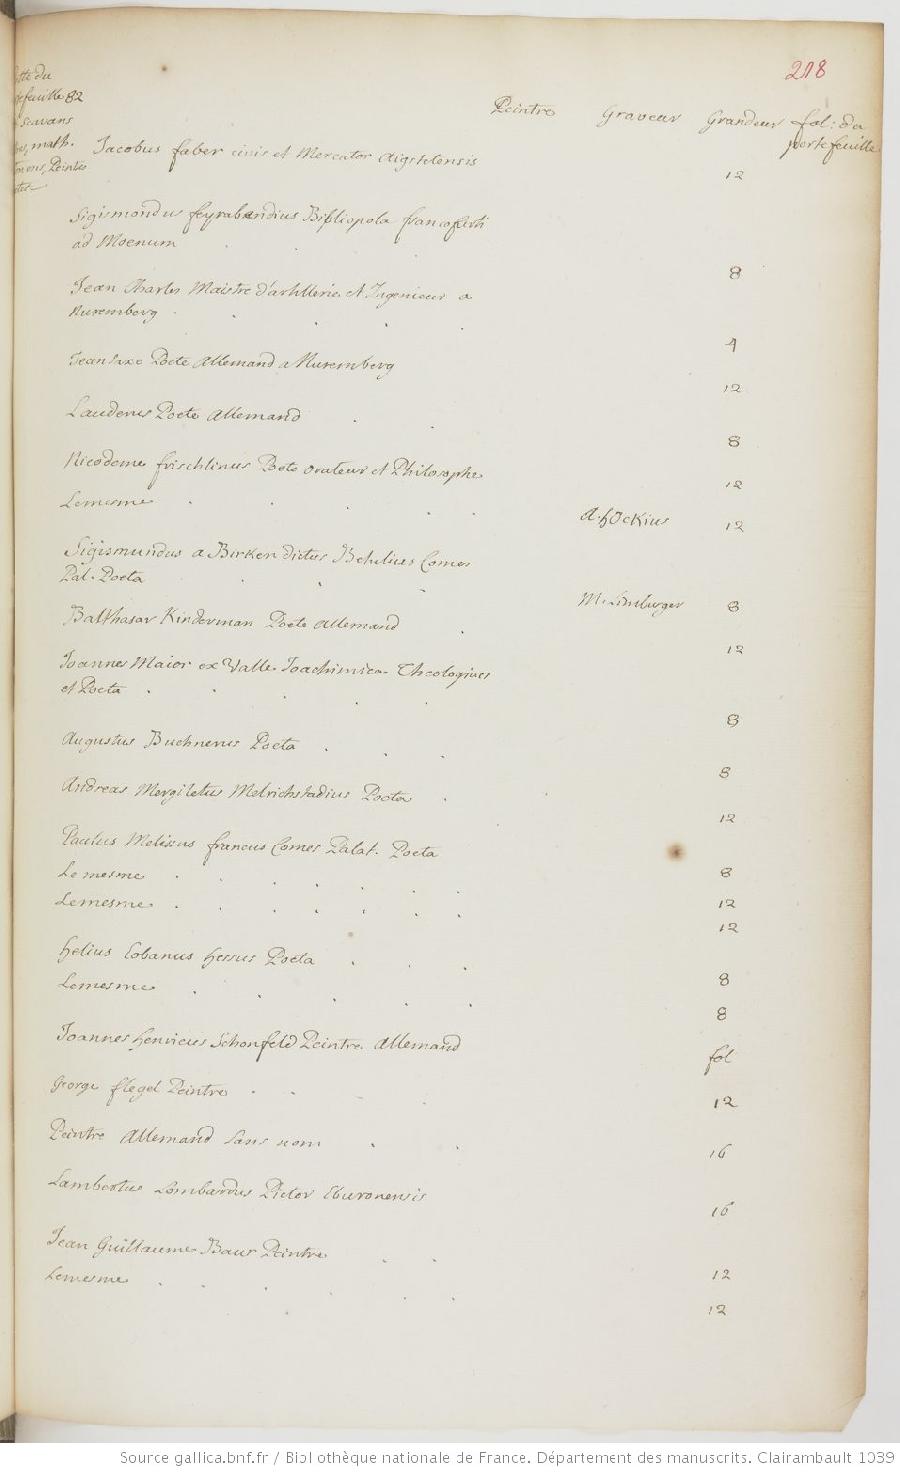 218
Suitte du
portefeuille 82
scavans
math.
Peintre
Peintre Graveur Grandeur fol: du
portefeuille
Jacobus faber civis et Mercator Aigstetensis 12
Sigismondus feyrabendius Bibliopola francoferti
ad Moenum 8
Jean Charles Maistre d'artillerie et Ingenieur a
Nuremberg 4
Jean Poete Allemand a Nuremberg 12
Lauderus Poete Allemand 8
Nicodeme frischlinus Poete orateur et Philosophe 12
Lemesme A. fockius 12
Sigismundus a Birken dictus Betulius Comes
Pal. Poeta M. Limburger 8
Balthasar Kinderman Poete Allemand 12
Joannes Maior ex Valle Joachimica Theologius
et Poeta 8
Augustus Buchnerus Poeta 8
Andreas Mergiletus Melrichstadius Poeta 12
Paulus Melissus francus Comes Palat. Poeta 8
Le mesme 12
Lemesme 12
Helius Eobanus Hessus Poeta 8
Lemesme 8
Joannes Henricus Schonfeld Peintre Allemand fol
George flegel Peintre 12
Peintre Allemand sans nom 16
Lambertus Lombardus Pictor Eburonensis 16
Jean Guillaume Baur Peintre 12
Lemesme 12
Source gallica.bnf.fr / Bibliothèque nationale de France. Département des manuscrits. Clairambault 1039